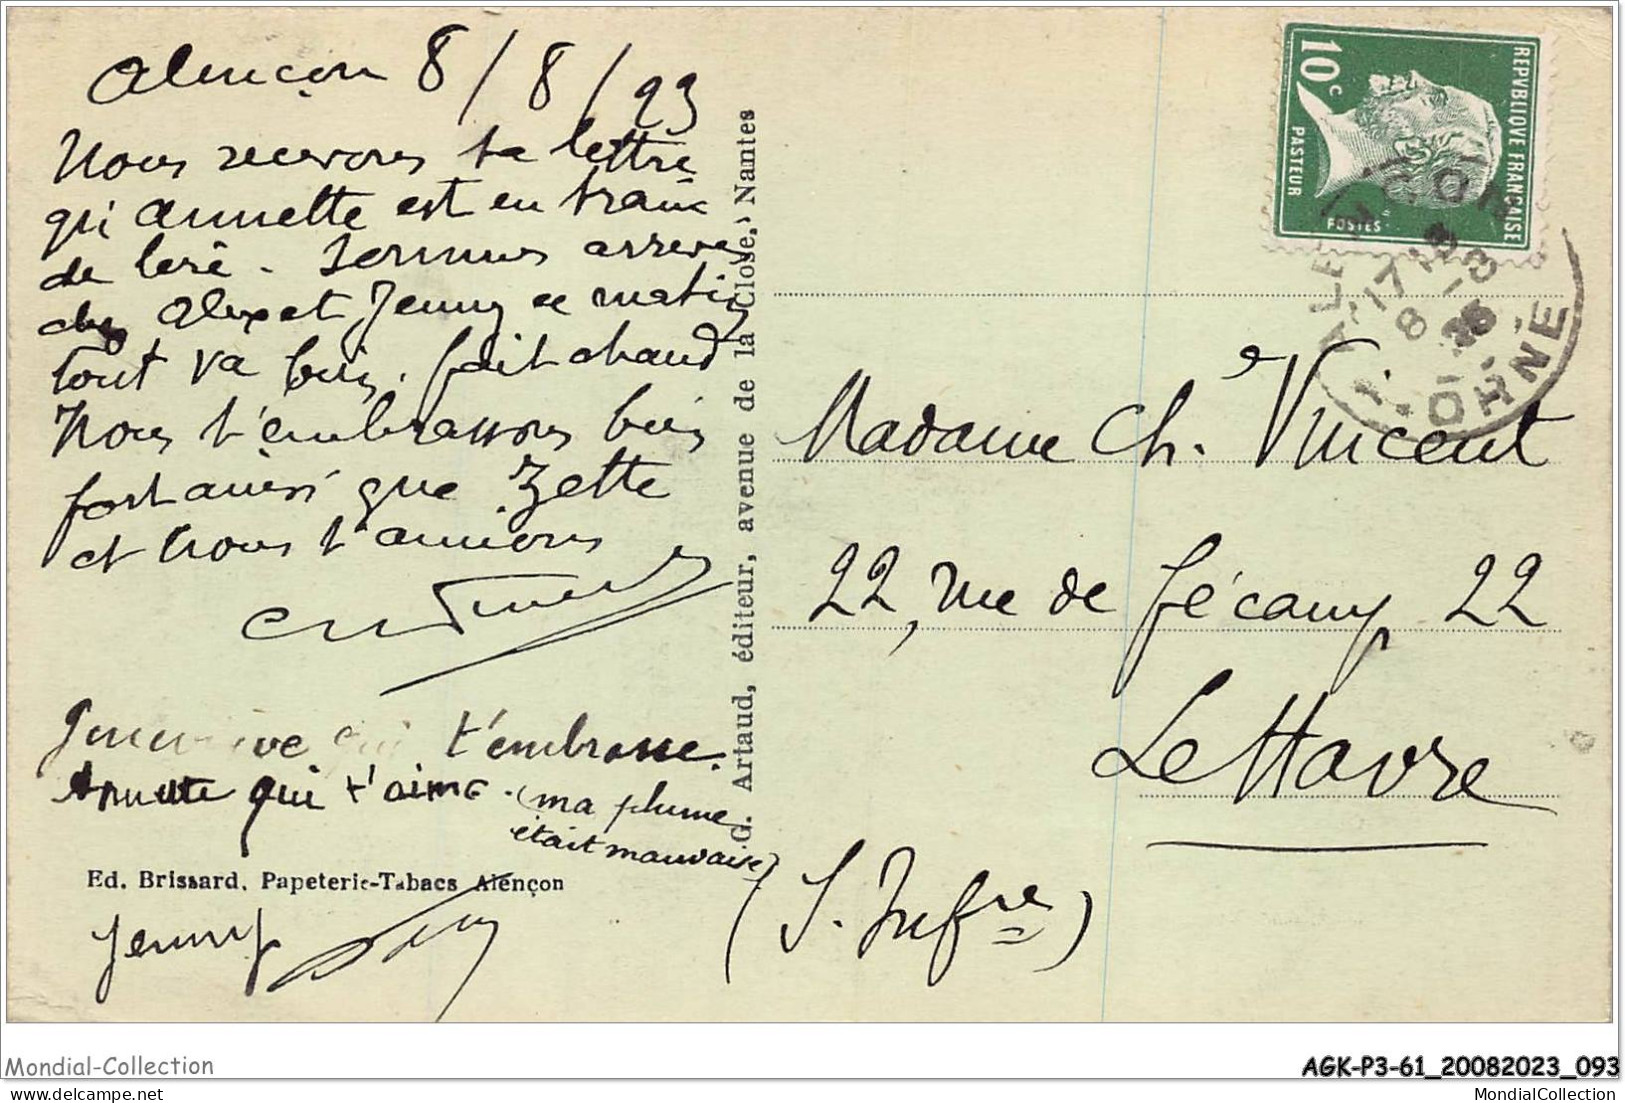 Alençon 8/8/23
Nous recevons ta lettre
qu'Annette est en train
de lire. Sommes arrivés
chez Alex et Jenny ce matin
tout va bien. fait chaud
Nous t'embrassons bien
fort ainsi que Zette
et nous t'aimons
Geneviève qui t'embrasse.
Annette qui t'aime. (ma plume
était mauvaise)
Ed. Brissard. Papeterie-Tabacs Alençon
Jenny
G. Artaud, éditeur, avenue de la Close, Nantes
REPVBLIQVE FRANÇAISE
10c
PASTEUR
POSTES
ALENÇON
17
8 -8
ORNE
Madame Ch. Vincent
22, rue de Fécamp 22
Le Havre
(S. Infre)
Mondial-Collection
AGK-P3-61_20082023_093
MondialCollection